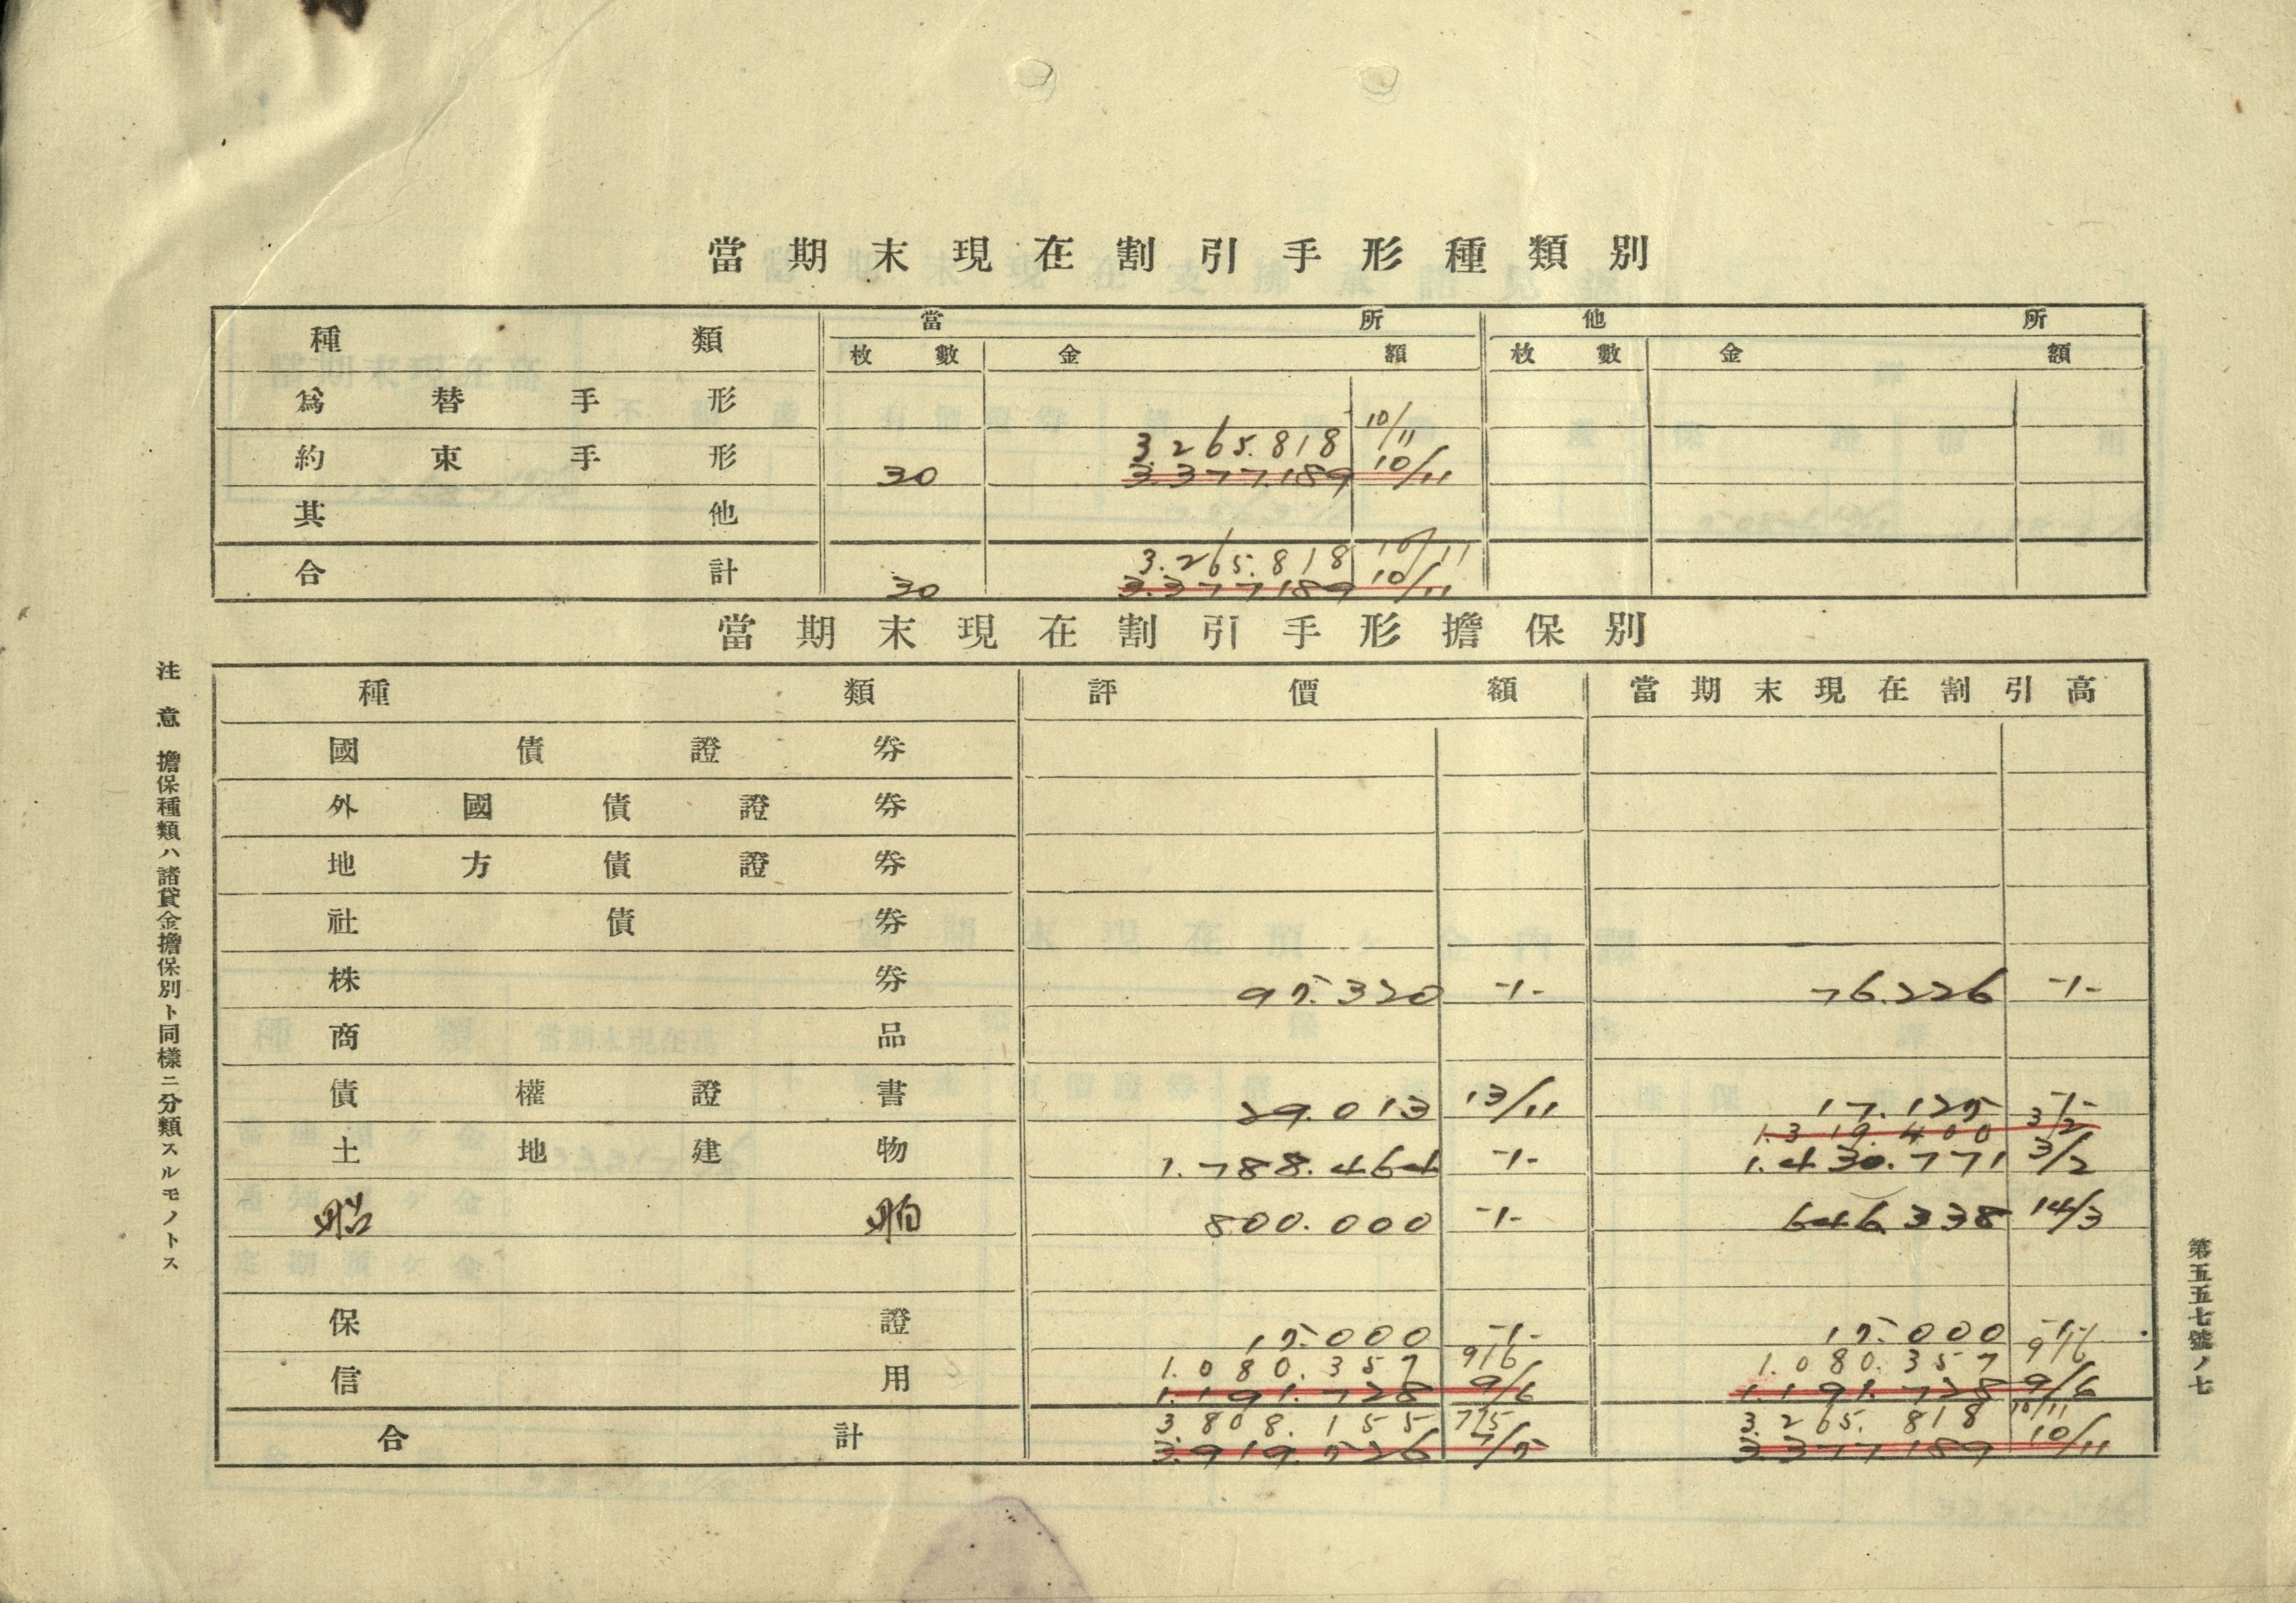 當期末現在割引手形種類別
種類 當所 他所
枚數 金額 枚數 金額
爲替手形
3.265.818 10/11
約束手形 30 3.377.189 10/11
其他
3.265.818 10/11
合計 30 3.377.189 10/11
當期末現在割引手形擔保別
種類 評價額 當期末現在割引高
國債證券
外國債證券
地方債證券
社債券
株券 95.320 -1- 76.226 -1-
商品
債權證書 29.013 13/11 17.125 -1-
1.319.400 3/2
土地建物 1.788.464 -1- 1.430.771 3/2
船舶 800.000 -1- 646.338 14/3
保證 15.000 -1- 15.000 -1-
1.080.357 9/6 1.080.357 9/6
信用 1.191.728 9/6 1.191.728 9/6
3.808.155 7/5 3.265.818 10/11
合計 3.919.526 7/5 3.377.189 10/11
注意 擔保種類ハ諸貸金擔保別ト同樣ニ分類スルモノトス
第五五七號ノ七